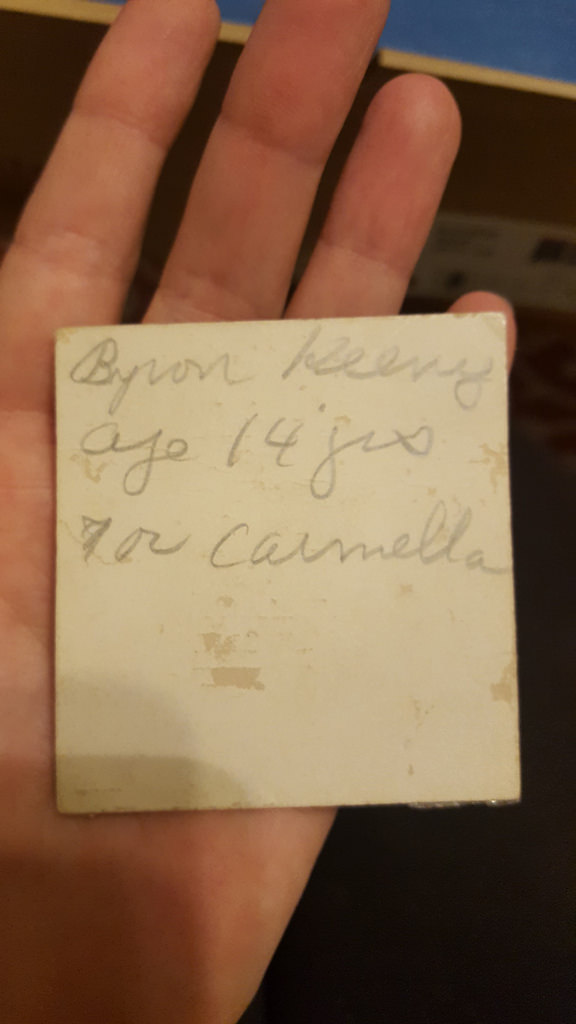 Byron Keeny
age 14 yrs
For Carmella